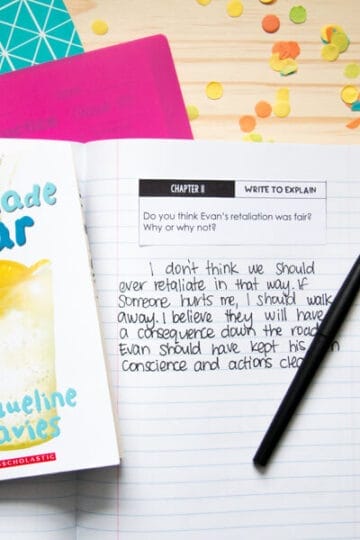 ade
ar
queline
avies
SCHOLASTIC
CHAPTER 11
WRITE TO EXPLAIN
Do you think Evan's retaliation was fair?
Why or why not?
I don't think we should
ever retaliate in that way. If
someone hurts me, I should walk
away. I believe they will have
a consequence down the road
Evan should have kept his
conscience and actions